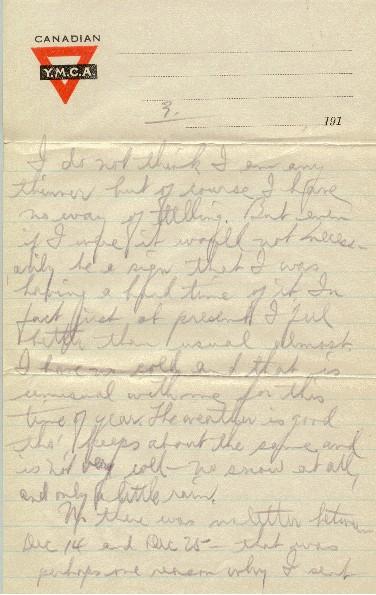 CANADIAN
Y.M.C.A.
3.
191
I do not think I am any
thinner but of course I have
no way of telling. But even
if I were it would not necess-
arily be a sign that I was
having a hard time of it. In
fact just at present I feel
better than usual almost.
I have no cold and that is
unusual with me for this
time of year. The weather is good
tho' keeps about the same and
is not very cold - no snow at all,
and only a little rain.
No there was no letter between
Dec 14 and Dec 25 - that was
perhaps one reason why I sent